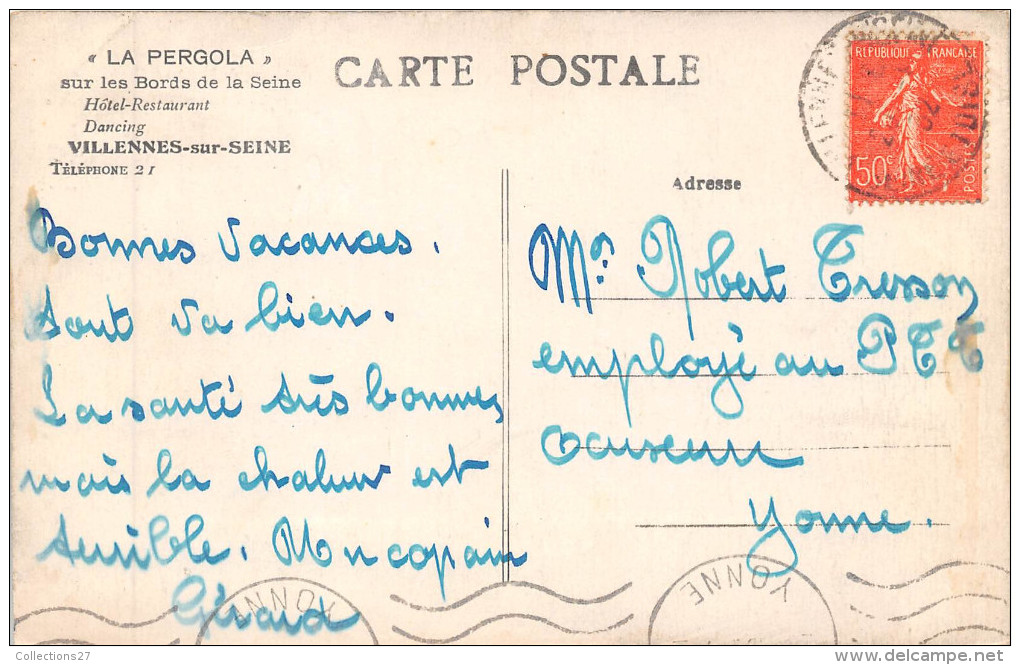 « LA PERGOLA »
sur les Bords de la Seine
Hôtel-Restaurant
Dancing
VILLENNES-sur-SEINE
TÉLÉPHONE 21
CARTE POSTALE
REPUBLIQUE FRANÇAISE
50c
POSTES
Adresse
Bonnes Vacances.
tout va bien.
La santé très bonnes
mais la chaleur est
terrible. Un copain
Gérard
Mr. Robert Tresson
employé au PTT
Yonne.
YONNE
YONNE
Collections27